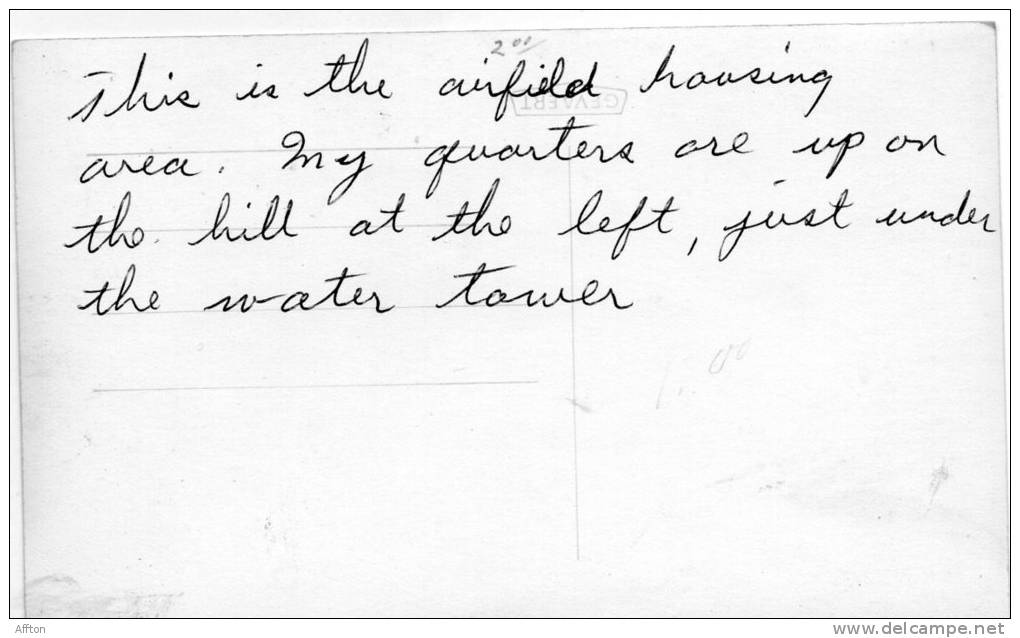 2.00
This is the airfield housing
GEVAERT
area. My quarters are up on
the hill at the left, just under
the water tower
1.00
Affton
www.delcampe.net